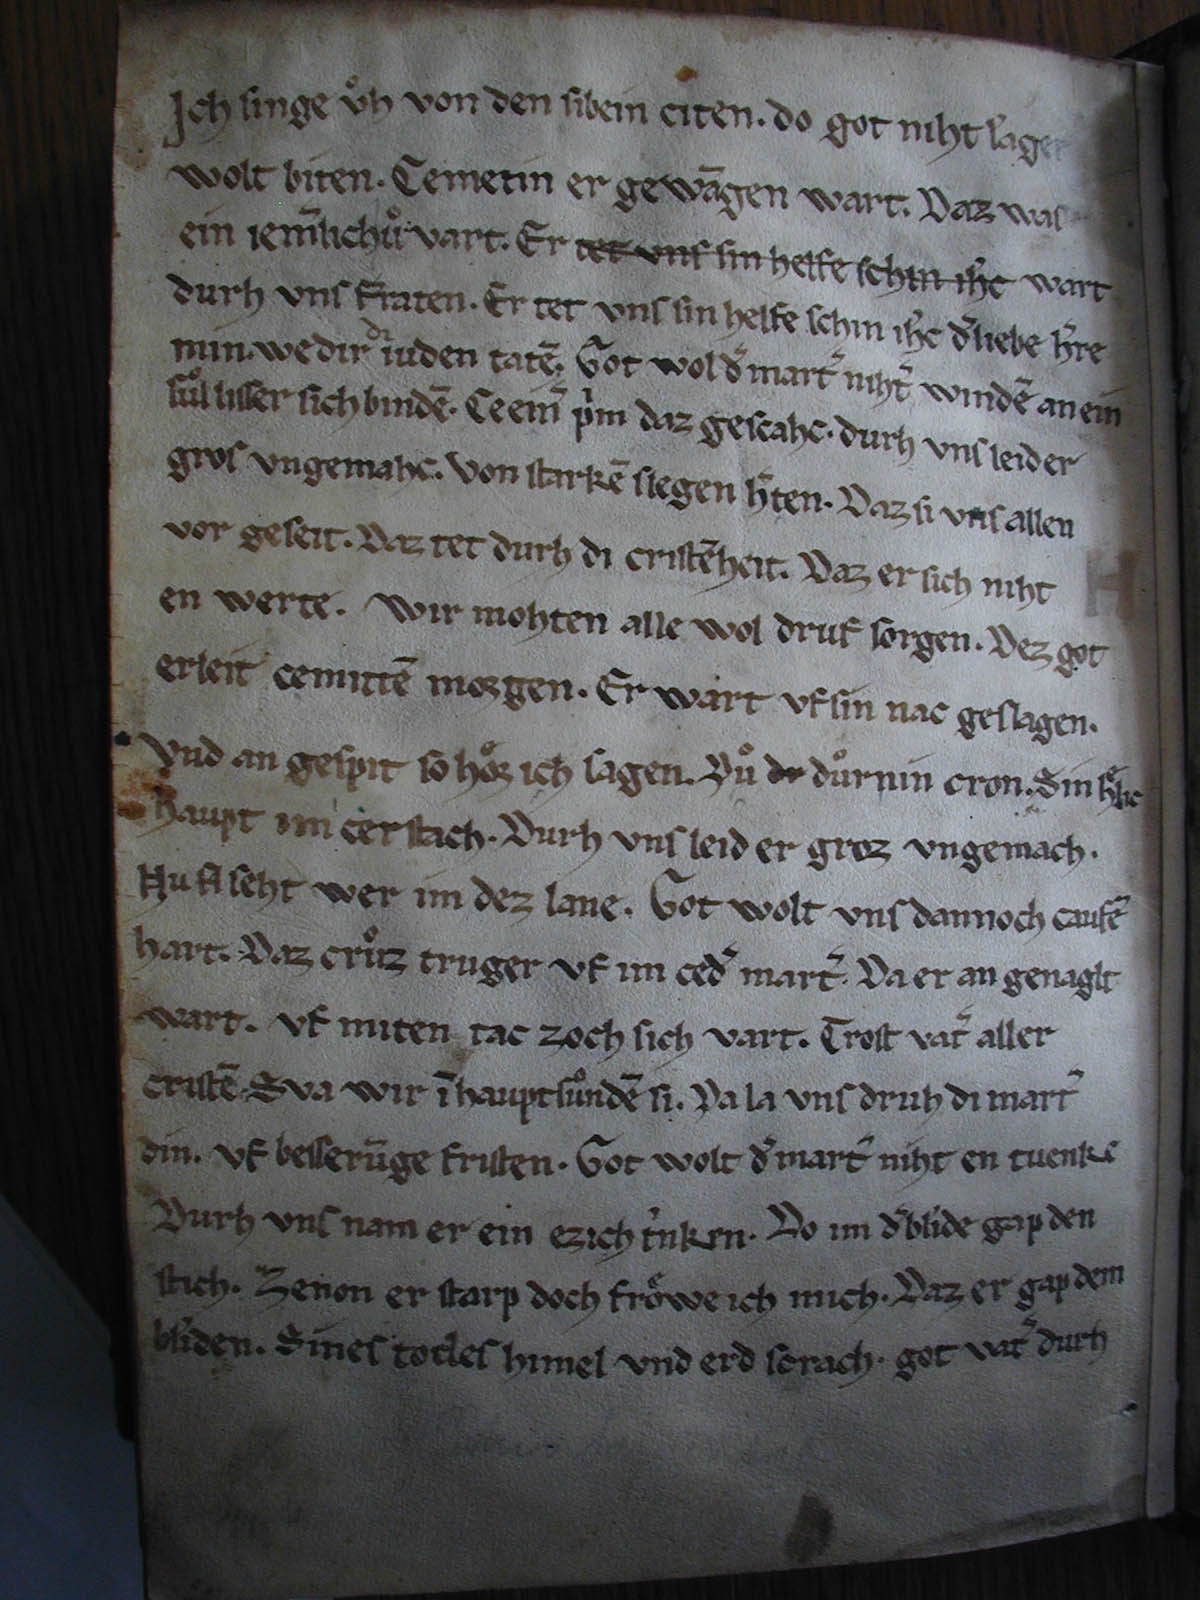 Ich singe vͦh von den sibein citen. do got niht lager
wolt biten. Cemetin er gewāgen wart. Daz was
ein iem̄lichuͦ vart. Er tet vns sin helfe schin ih̄c wart
durh vns fraten. Er tet vns sin helfe schin ih̄c d̓liebe h̓re
min. we dir di iuden tatē. Got wol d̓ mart̓ niht̓ windē an ein
suͦl lisser sich bindē. Ce em̄ p̓m daz gescahc. durh vns leid er
gros vngemahc. Von starkē slegen h̓ten. Daz si vns allen
vor geseit. Daz tet durh di cristēheit. Daz er sich niht
en werte. Wir mohten alle wol druf sorgen. Dez got
erleit cemittē morgen. Er wart vf sin nac geslagen.
Vnd an gespit so hoͤr ich sagen. Duͦ dr duͦrnin cron. Sin
haupt im cerstach. Durh vns leid er groz vngemach.
Nu seht wer im dez lane. Got wolt vns dannoch caufē
hart. Daz cruͦz truger vf im ced̓ mart̓. Da er an genaglt
wart. vf miten tac zoch sich vart. Trost vat̓ aller
cristē. Sva wir ī hauptsuͦndē si. Da la vns druh di mart̓
din. vf besserūge fristen. Got wolt d̓ mart̓ niht en tuenke
Durh vns nam er ein ezich t̓nken. Do im d̓ blīde gap den
stich. Zenon er starp doch froͤwe ich mich. Daz er gap dem
blīden. Sines todes himel vnd erd scrach. got vat̓ durh